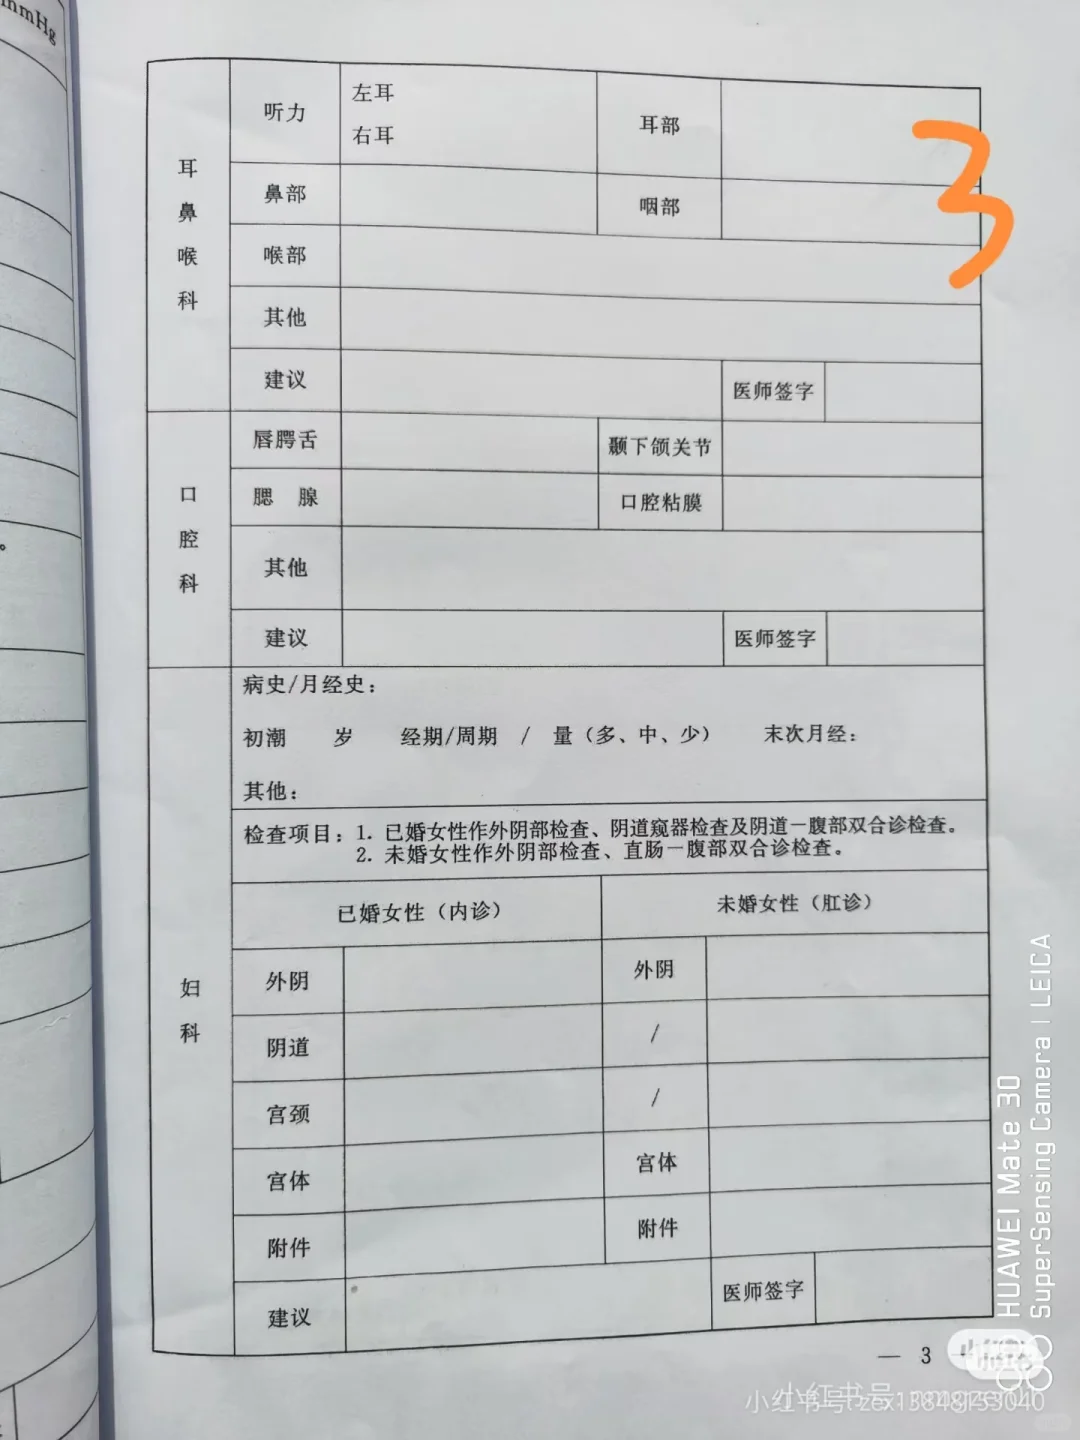 mmHg
3
耳鼻喉科
听力 左耳 耳部
右耳
鼻部 咽部
喉部
其他
建议 医师签字
口腔科
唇腭舌 颞下颌关节
腮 腺 口腔粘膜
其他
建议 医师签字
妇科
病史/月经史：
初潮 岁 经期/周期 / 量（多、中、少） 末次月经：
其他：
检查项目：1. 已婚女性作外阴部检查、阴道窥器检查及阴道－腹部双合诊检查。
2. 未婚女性作外阴部检查、直肠－腹部双合诊检查。
已婚女性（内诊） 未婚女性（肛诊）
外阴 外阴
阴道 /
宫颈 /
宫体 宫体
附件 附件
建议 医师签字
— 3
HUAWEI Mate 30
SuperSensing Camera | LEICA
小红书号: